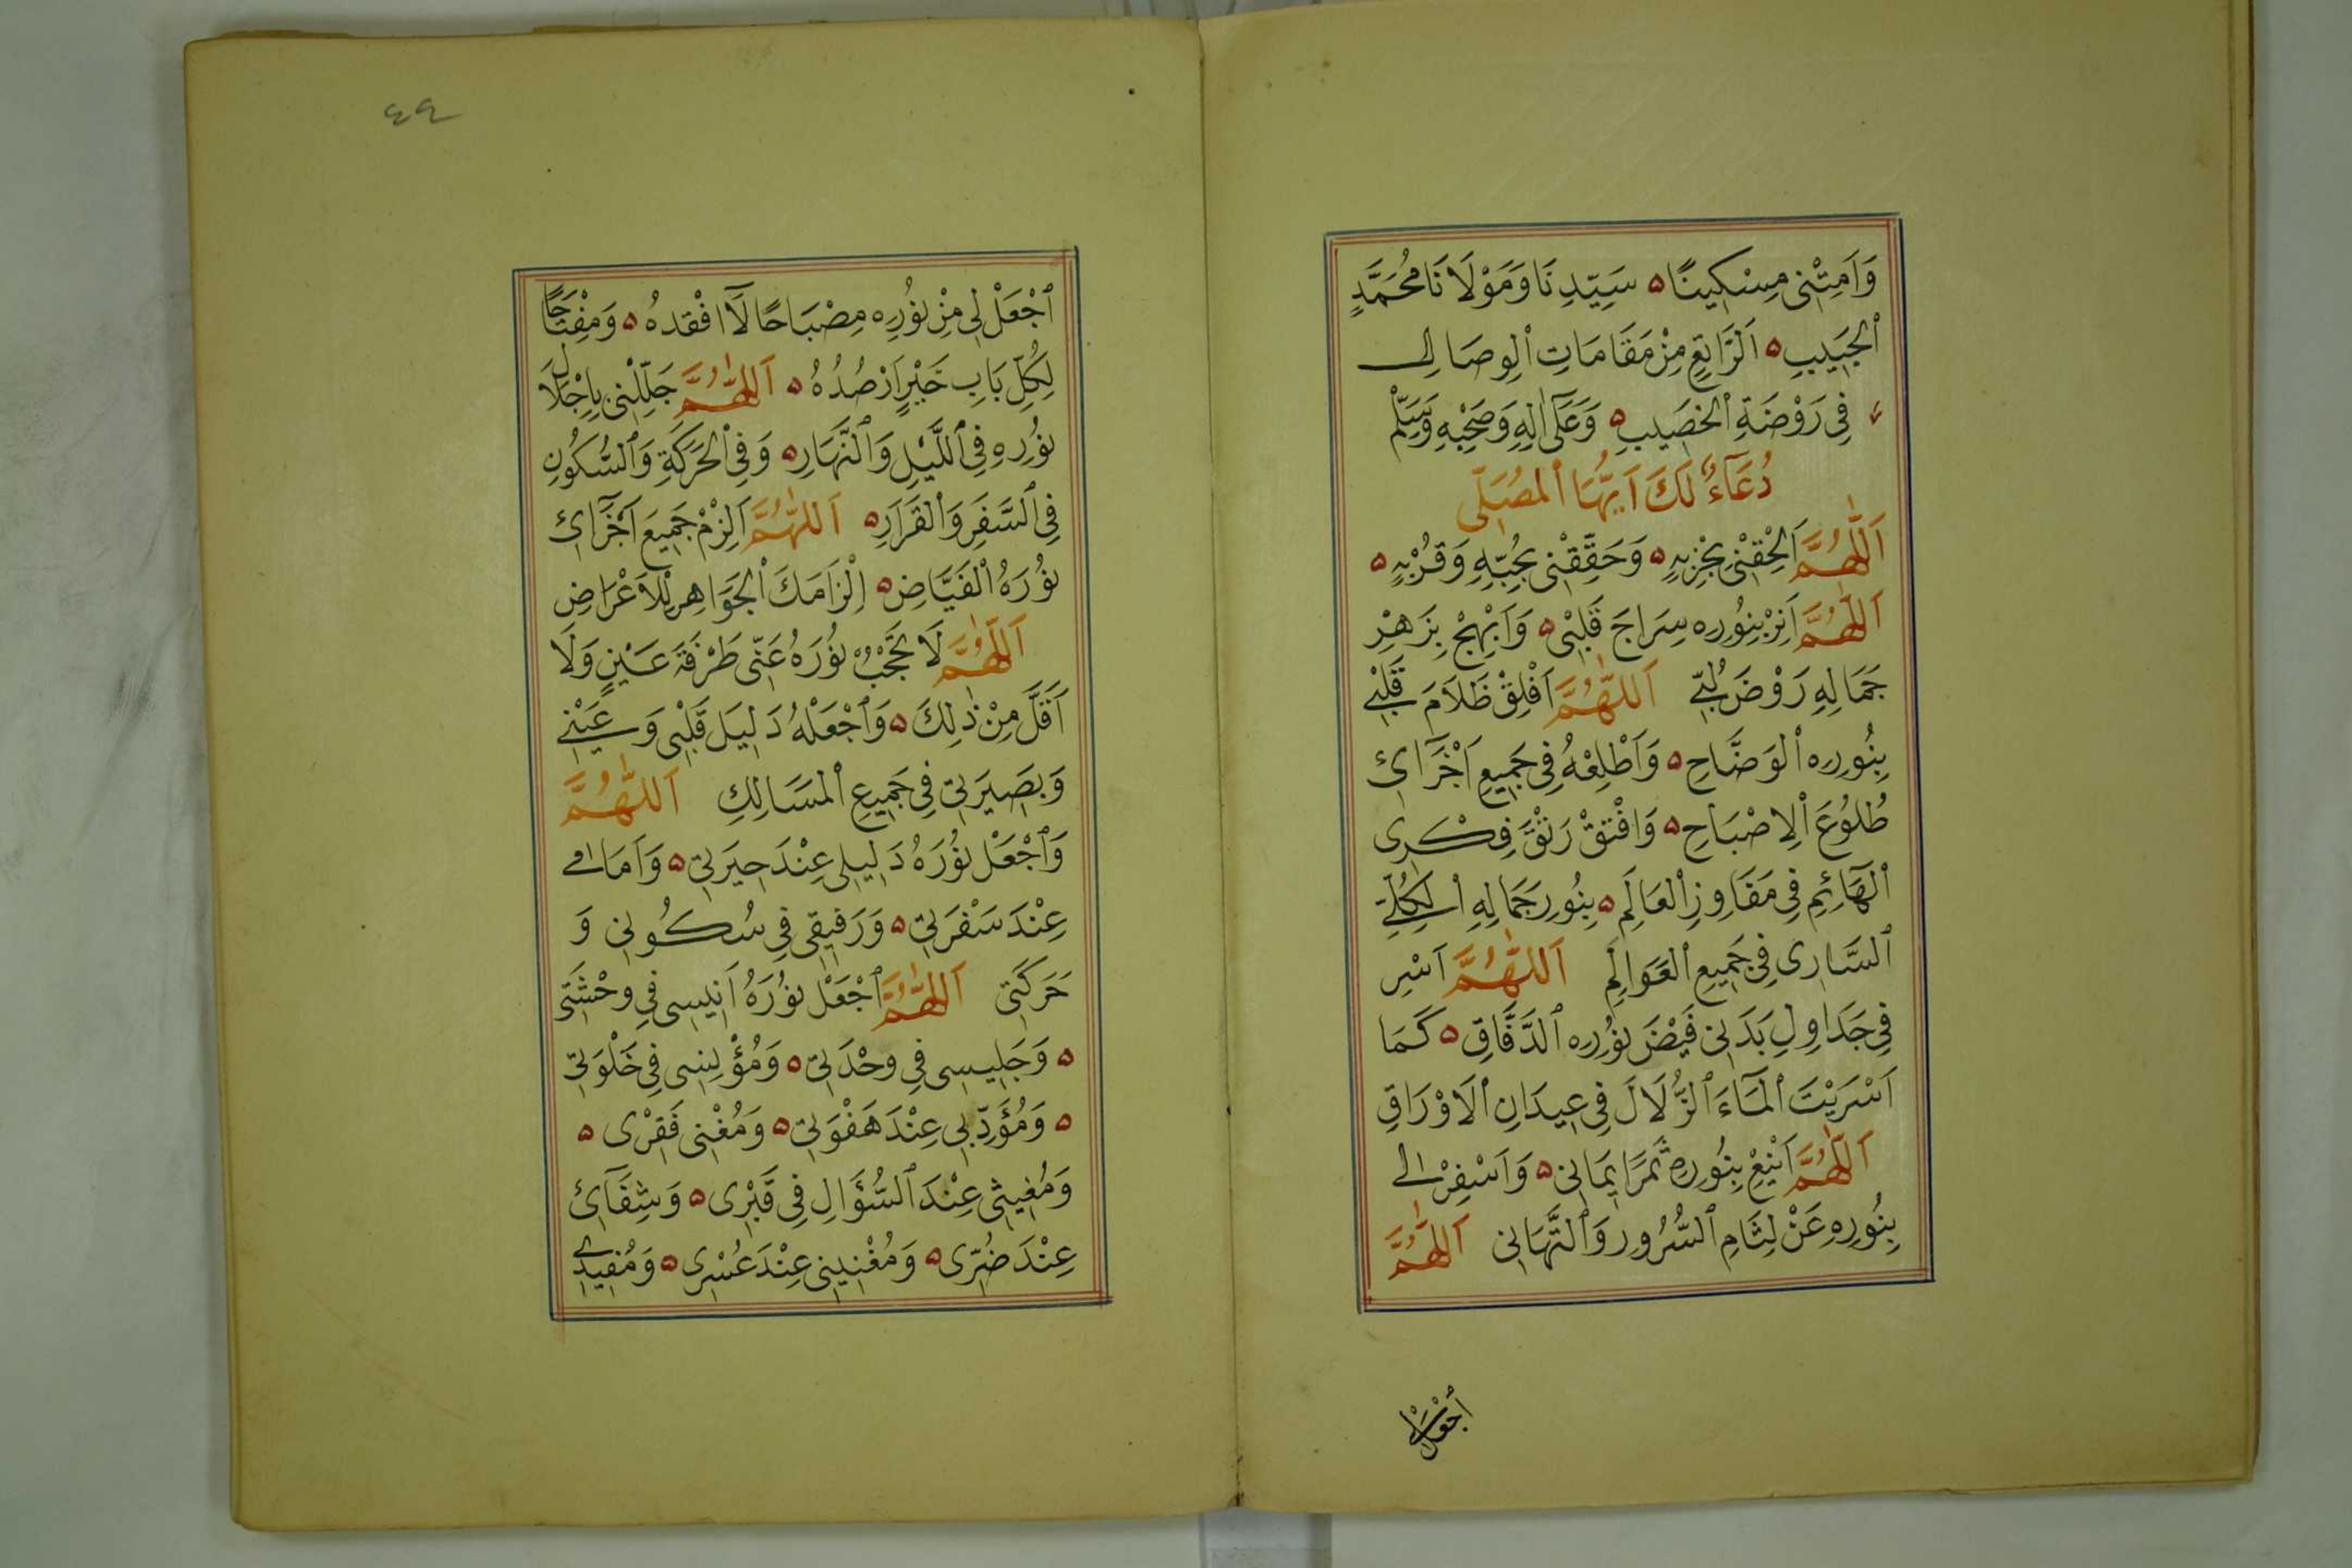 وَاَمِتْنِى مِسْكِينًا ه سَيِّدِنَا وَمَوْلَانَا مُحَمَّدٍ
ٱلْحَبِيبِ ه اَلرَّاتِعِ مِنْ مَقَامَاتِ ٱلْوِصَالِ
فِى رَوْضَةِ ٱلْخَصِيبِ ه وَعَلَى اٰلِهِ وَصَحْبِهِ وَسَلِّمْ
دُعَاءٌ لَكَ اَيُّهَا ٱلْمُصَلِّى
اَللّٰهُمَّ اَلْحِقْنِى بِحِزْبِهِ ه وَحَقِّقْنِى بِحُبِّهِ وَقُرْبِهِ ه
اَللّٰهُمَّ اَنِرْ بِنُورِهِ سِرَاجَ قَلْبِى ه وَاَبْهِجْ بِزَهْرِ
جَمَالِهِ رَوْضَ لُبِّى اَللّٰهُمَّ اَفْلِقْ ظَلَامَ قَلْبِى
بِنُورِهِ ٱلْوَضَّاحِ ه وَاَطْلِعْهُ فِى جَمِيعِ اَجْزَآئِ
طُلُوُعَ ٱلْاِصْبَاحِ ه وَافْتِقْ رَتْقَ فِكْرِى
ٱلْهَآئِمِ فِى مَفَاوِزِ ٱلْعَالَمِ ه بِنُورِ جَمَالِهِ ٱلْكُلِّىِ
ٱلسَّارِى فِى جَمِيعِ ٱلْعَوَالِمِ اَللّٰهُمَّ اَسْرِ
فِى جَدَاوِلِ بَدَنِى فَيْضَ نُورِهِ ٱلدَّفَّاقِ ه كَمَا
اَسْرَيْتَ ٱلْمَآءَ ٱلزُّلَالَ فِى عِيدَانِ ٱلْاَوْرَاقِ
اَللّٰهُمَّ اَيْنِعْ بِنُورِهِ ثَمَرَ اِيمَانِى ه وَاَسْفِرْ لِى
بِنُورِهِ عَنْ لِثَامِ ٱلسُّرُورِ وَٱلتَّهَانِى اَللّٰهُمَّ
ٱجْعَلْ لِى
٤٤
ٱجْعَلْ لِى مِنْ نُورِهِ مِصْبَاحًا لَآ افْقِدهُ ه وَمِفْتَاحًا
لِكُلِّ بَابِ خَيْرٍ اَرْصُدُهُ ه اَللّٰهُمَّ جَلِّلْنِى بِاِجْلَالِ
نُورِهِ فِى ٱللَّيْلِ وَٱلنَّهَارِ ه وَفِى ٱلْحَرَكَةِ وَٱلسُّكُونِ
فِى ٱلسَّفَرِ وَٱلْقَرَارِ ه اَللّٰهُمَّ اَلْزِمْ جَمِيعَ اَجْزَآئِ
نُورَهُ ٱلْفَيَّاضِ ه اِلْزَامَكَ ٱلْجَوَاهِرِ لِلْاَعْرَاضِ
اَللّٰهُمَّ لَا تَحْجُبْ نُورَهُ عَنِّى طَرْفَةَ عَيْنٍ وَلَا
اَقَلَّ مِنْ ذٰلِكَ ه وَٱجْعَلْهُ دَلِيلَ قَلْبِى وَعَيْنِى
وَبَصِيرَتِى فِى جَمِيعِ ٱلْمَسَالِكِ اَللّٰهُمَّ
وَٱجْعَلْ نُورَهُ دَلِيلِى عِنْدَ حِيرَتِى ه وَاَمَامِى
عِنْدَ سَفْرَتِى ه وَرَفِيقِى فِى سُكُونِى وَ
حَرَكَتِى اَللّٰهُمَّ ٱجْعَلْ نُورَهُ اَنِيسِى فِى وحْشَتِى
ه وَجَلِيسِى فِى وحْدَتِى ه وَمُؤْنِسِى فِى خَلْوَتِى
ه وَمُؤَدِّبِى عِنْدَ هَفْوَتِى ه وَمُغْنِى فَقْرِى ه
وَمُغِيثِى عِنْدَ ٱلسُّؤَالِ فِى قَبْرِى ه وَشِفَآئِ
عِنْدَ ضُرِّى ه وَمُغْنِينِى عِنْدَ عُسْرِى ه وَمُفِيدِى